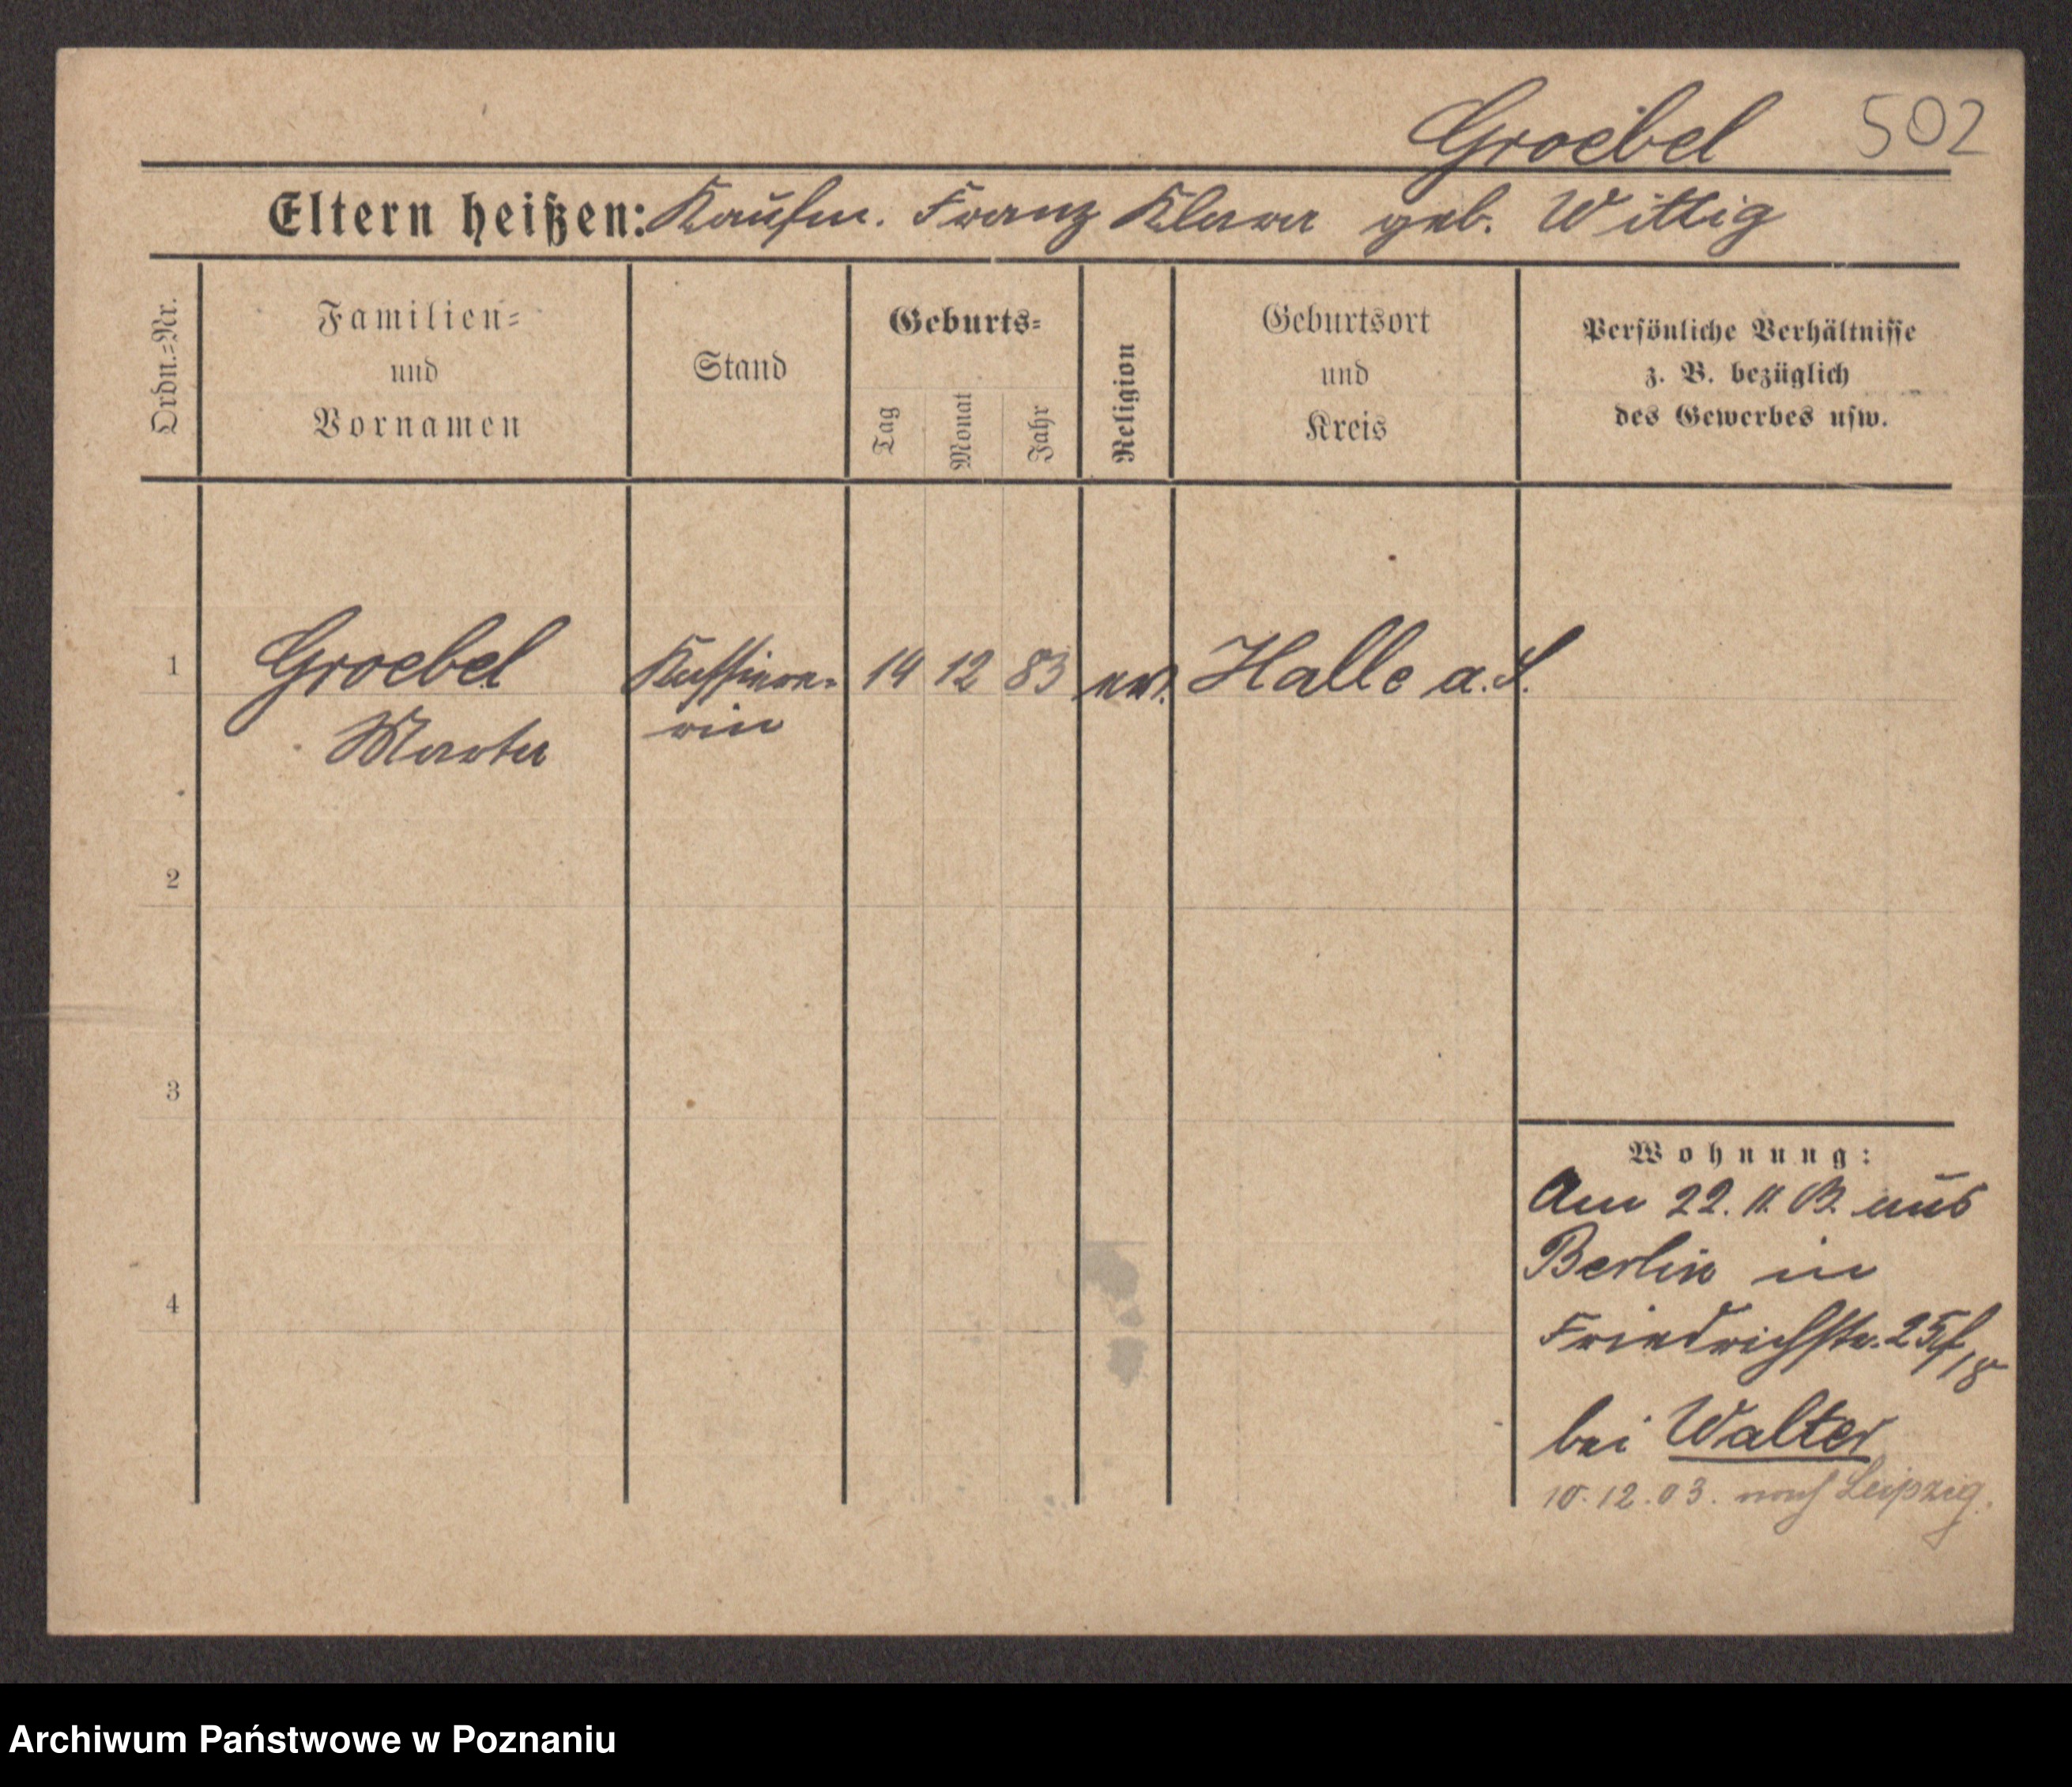 Groebel 502
Eltern heißen: Kaufm. Franz Klara geb. Wittig
Ordn.=Nr.
Familien=
und
Vornamen
Stand
Geburts=
Tag
Monat
Jahr
Religion
Geburtsort
und
Kreis
Persönliche Verhältnisse
z. B. bezüglich
des Gewerbes usw.
1 Groebel Kassiere= 14 12 83 ev. Halle a. S.
Marta rin
2
3
4
Wohnung:
Am 22. 11. 03. aus
Berlin in
Friedrichstr. 25
bei Walter
10.12.03. nach Leipzig.
Archiwum Państwowe w Poznaniu